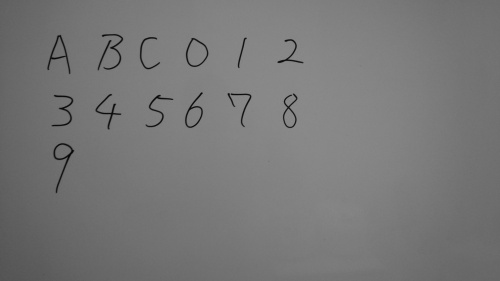 A B C 0 1 2
3 4 5 6 7 8
9